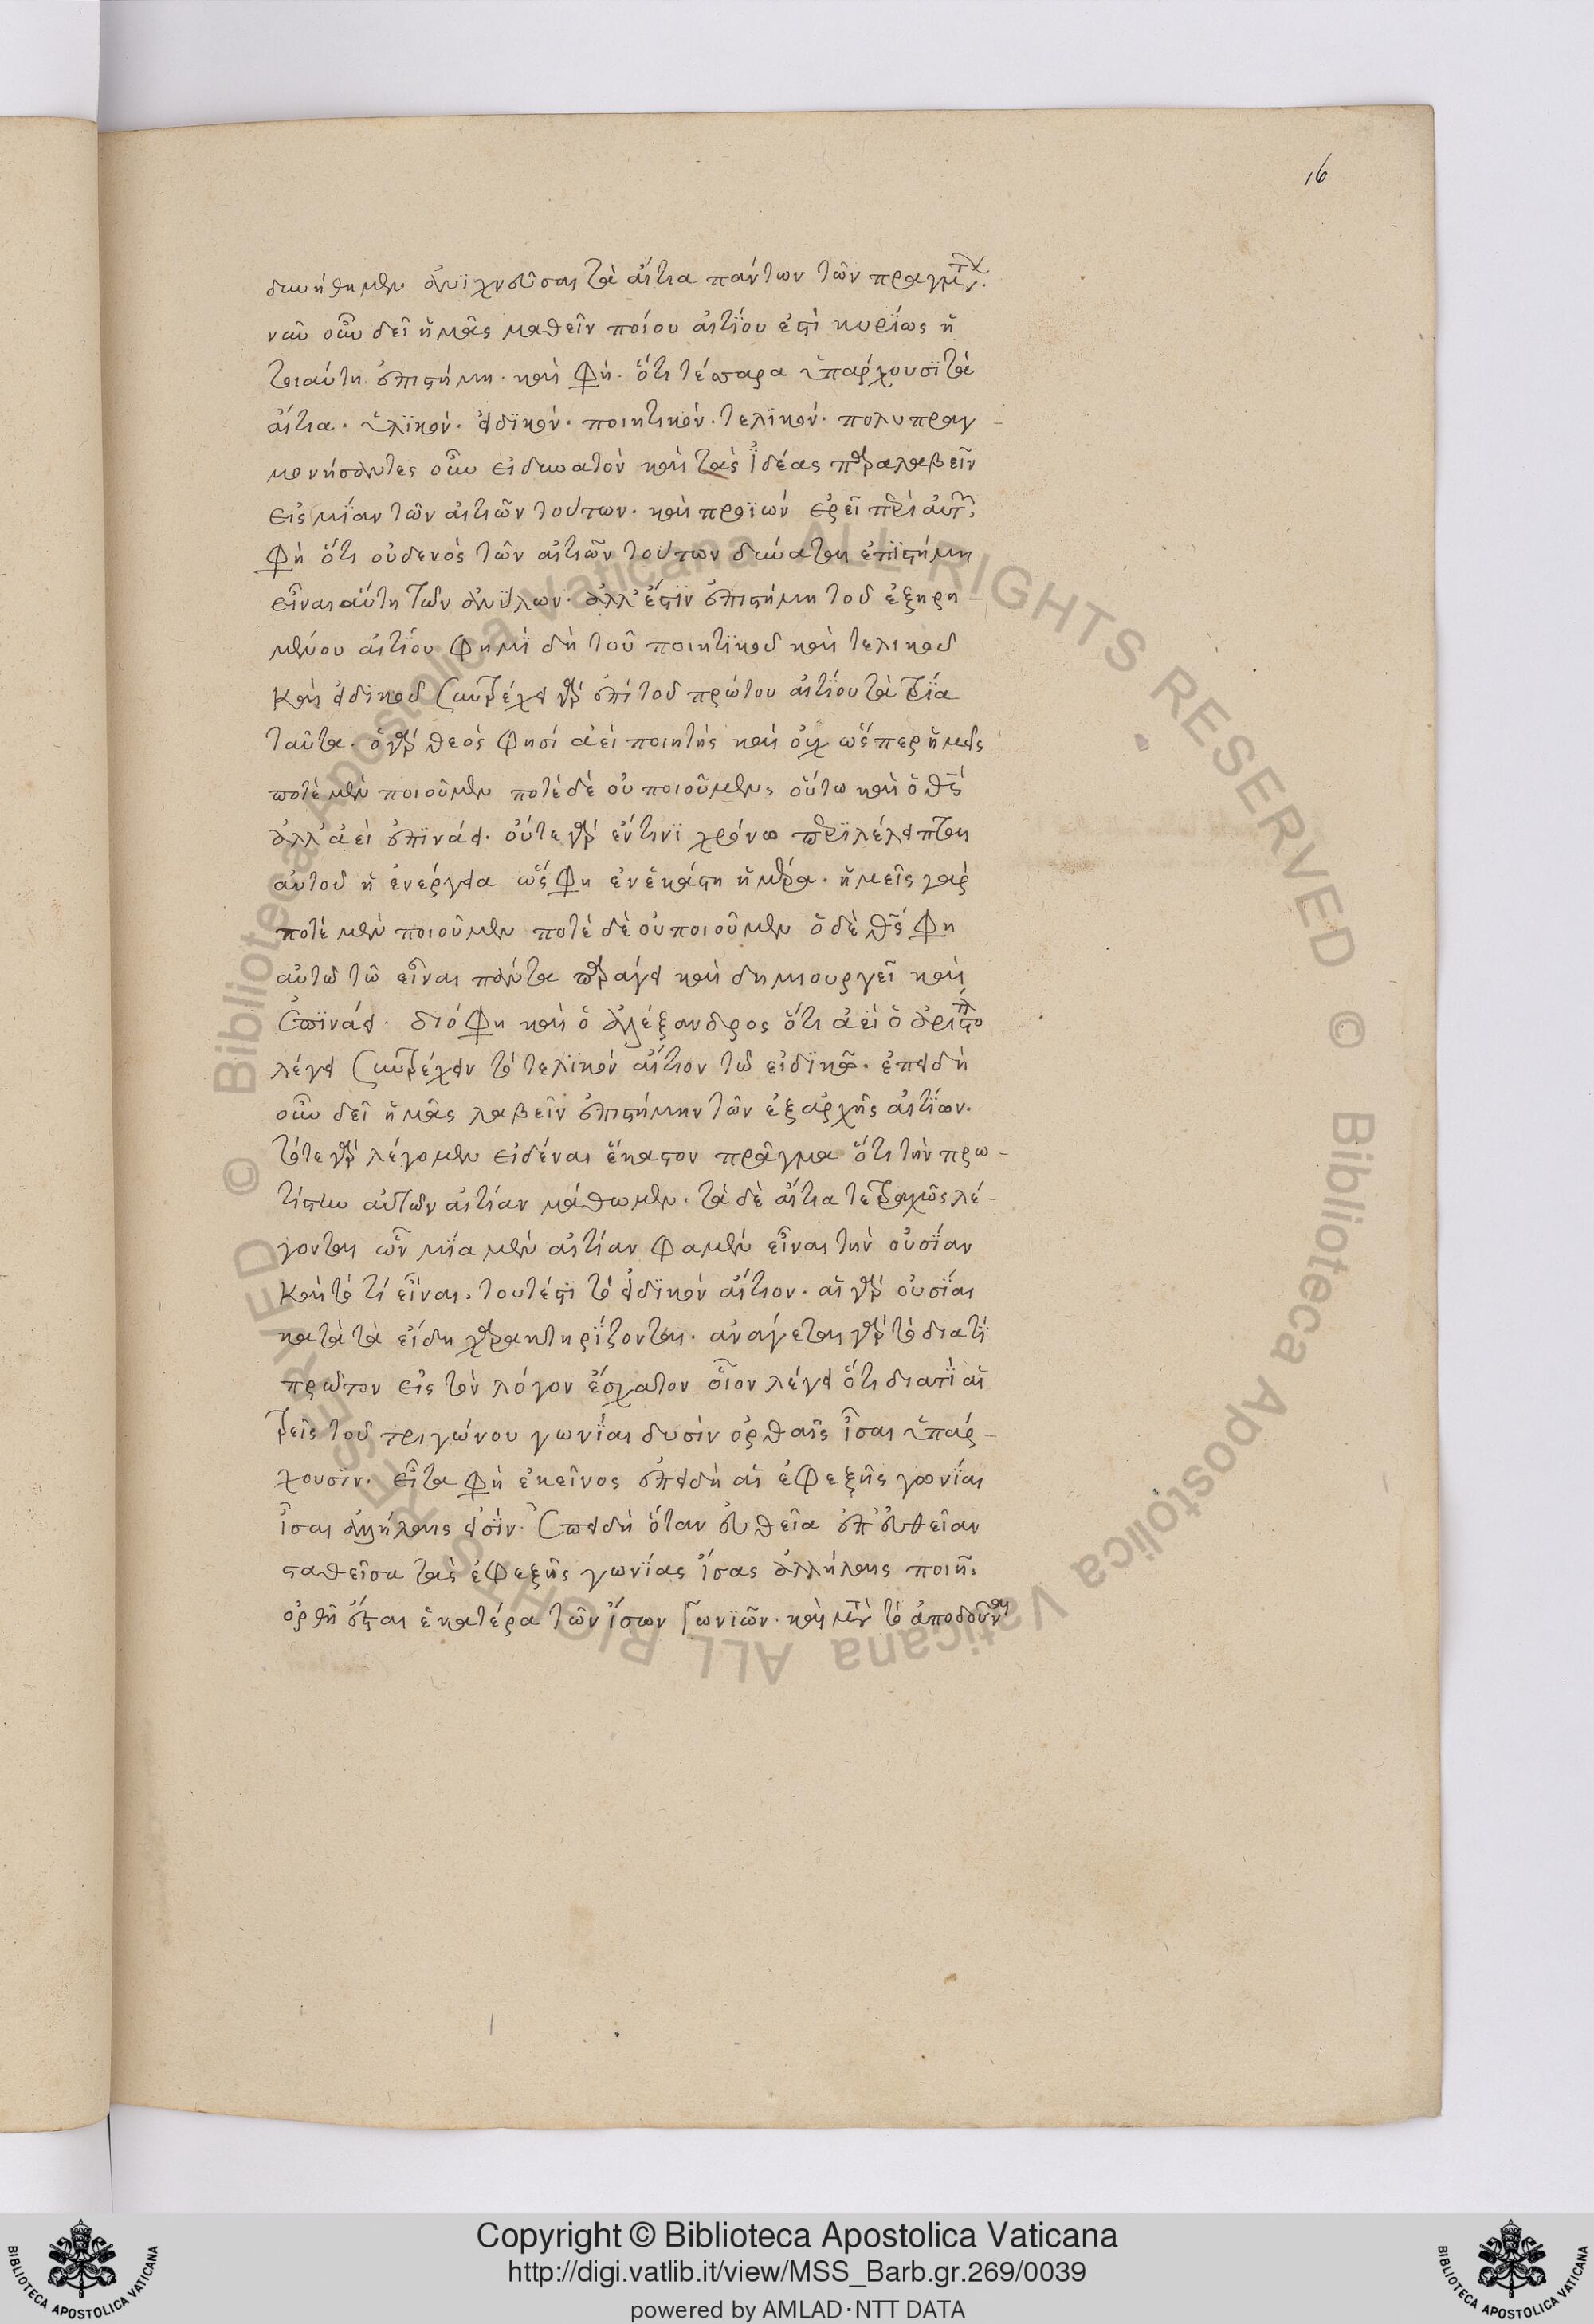 16
δυνήθημεν ἀνϊχνεῦσαι τὰ αἴτια πάντων τῶν πραγμάτων.
νῦν οὖν δεῖ ἡμᾶς μαθεῖν ποίου αἰτΐου ἐστὶ κυρΐως ἡ
τοιαύτη ἐπιστήμη. καὶ φη. ὅτι τέσσαρα ὑπάρχουσϊ τὰ
αἴτια. ὑλϊκόν. εἰδϊκόν. ποιητικόν. τελϊκόν. πολυπραγ-
μονήσαντες οὖν εἰ δυνατὸν καὶ τὰς ἰδέας παραλαβεῖν
εἰς μΐαν τῶν αἰτιῶν τούτων. καὶ προϊὼν ἐρεῖ περὶ αὐτῶν.
φη ὅτι οὐδενὸς τῶν αἰτιῶν τούτων δύναται ἐπϊστήμη
εἶναι αὕτη τῶν ἀνΰλων. ἀλλ' ἔστϊν ἐπιστήμη τοῦ ἐξηρη-
μένου αἰτΐου φημϊ δὴ τοῦ ποιητϊκοῦ καὶ τελικοῦ
καὶ εἰδϊκοῦ συντρέχει γὰρ ἐπὶ τοῦ πρώτου αἰτΐου τὰ τρΐα
ταῦτα. ὁ γὰρ θεὸς φησὶ ἀεὶ ποιητὴς καὶ οὐχ ὥσπερ ἡμεῖς
ποτὲ μὲν ποιοῦμεν ποτὲ δὲ οὐ ποιοῦμεν, οὕτω καὶ ὁ θς
ἀλλ' ἀεὶ ἐπϊνάει. οὔτε γὰρ ἔν τινϊ χρόνω περϊλέλειπται
αὐτοῦ ἡ ἐνέργεια ὥς φη ἐν ἑκάστη ἡμέρα. ἡμεῖς γὰρ
ποτὲ μὲν ποιοῦμεν ποτὲ δὲ οὐ ποιοῦμεν ὁ δὲ θς φη
αὐτῶ τῶ εἶναι πάντα παράγει καὶ δημιουργεῖ καὶ
ἐπϊνάει. διό φη καὶ ὁ ἀλέξανδρος ὅτι ἀεὶ ὁ ἀριστο
λέγει συντρέχειν τὸ τελϊκὸν αἴτιον τῶ εἰδϊκῶ. ἐπειδὴ
οὖν δεῖ ἡμᾶς λαβεῖν ἐπιστήμην τῶν ἐξ ἀρχῆς αἰτΐων.
τότε γὰρ λέγομεν εἰδέναι ἕκαστον πρᾶγμα ὅτι τὴν πρω-
τίστην αὐτῶν αἰτίαν μάθωμεν. τὰ δὲ αἴτια τετραχῶς λέ-
γονται ὧν μΐα μὲν αἰτίαν φαμὲν εἶναι τὴν οὐσΐαν
καὶ τὸ τί εἶναι. τουτέστϊ τὸ εἰδϊκὸν αἴτιον. αἱ γὰρ οὐσΐαι
κατὰ τὰ εἴδη χαρακτηρΐζονται. ἀνάγεται γὰρ τὸ διατί
πρῶτον εἰς τὸν λόγον ἔσχατον οἷον λέγει ὅτι διατὶ αἱ
τρεῖς τοῦ τριγώνου γωνΐαι δυσὶν ὀρθαῖς ἴσαι ὑπάρ-
χουσϊν. εἶτα φη ἐκεῖνος ἐπειδὴ αἱ ἐφεξῆς γωνΐαι
ἴσαι ἀλλήλαις εἰσΐν. ἐπειδὴ ὅταν εὐθεῖα ἐπ' εὐθεῖαν
σταθεῖσα τὰς ἐφεξῆς γωνΐας ἴσας ἀλλήλαις ποιῆ.
ὀρθὴ ἔσται ἑκατέρα τῶν ἴσων γωνϊῶν. καὶ μετὰ τὸ ἀποδοῦναι
Copyright © Biblioteca Apostolica Vaticana
http://digi.vatlib.it/view/MSS_Barb.gr.269/0039
powered by AMLAD·NTT DATA
BIBLIOTECA APOSTOLICA VATICANA
BIBLIOTECA APOSTOLICA VATICANA
© Biblioteca Apostolica Vaticana ALL RIGHTS RESERVED © Biblioteca Apostolica Vaticana ALL RIGHTS RESERVED